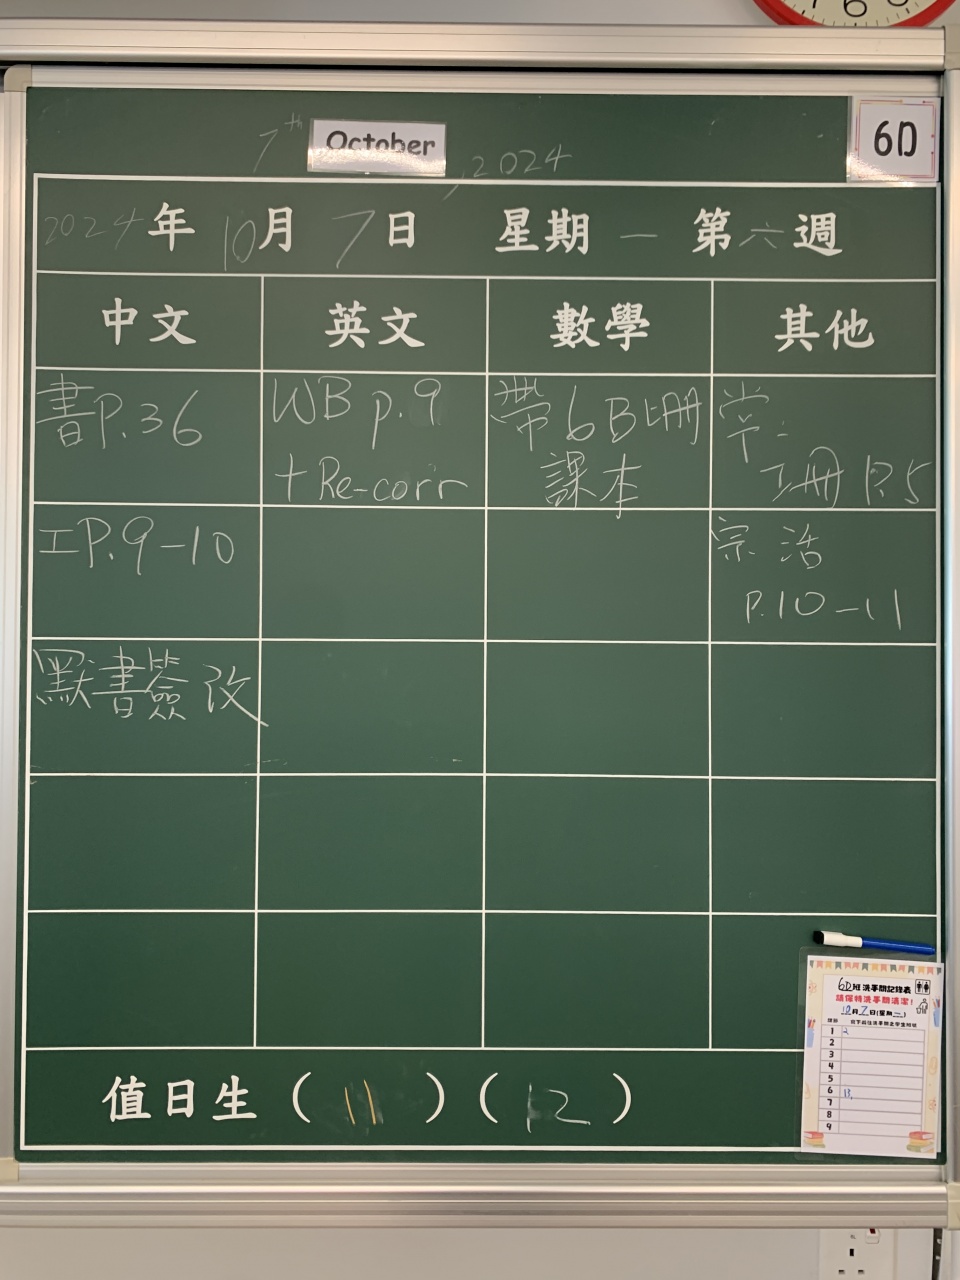 6
7th October, 2024
6D
2024年10月7日 星期一 第六週
中文 英文 數學 其他
書P.36
WB p.9
+Re-corr
帶6B上冊
課本
常:
工冊 P.5
工P.9-10
宗 活
P.10-11
默書簽改
6D班洗手間記錄表
請保持洗手間清潔!
10月7日(星期一)
1 2
2
3
4
5
6 13,
7
8
9
值日生(11)(12)